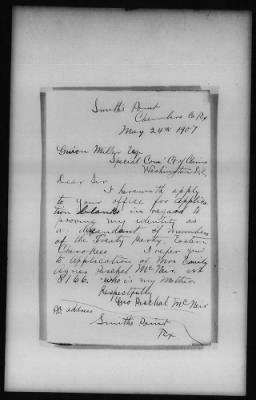 Smith's Point
Chambers Co Tx
May 24th 1907
Guion Miller Esq
Special Com' Ct of Claims
Washington D.C.
Dear Sir
I herewith apply
to your office for applica
tion blanks in regard to
proving my identity as
a descendant of members
of the Treaty Party, Eastern
Cherokees. I refer you
to application of Mrs Emily
Agnes Peschal McNeir at
8166. who is my mother
Respectfully
Geo Peschal McNeir
address
Smiths Point
Tex